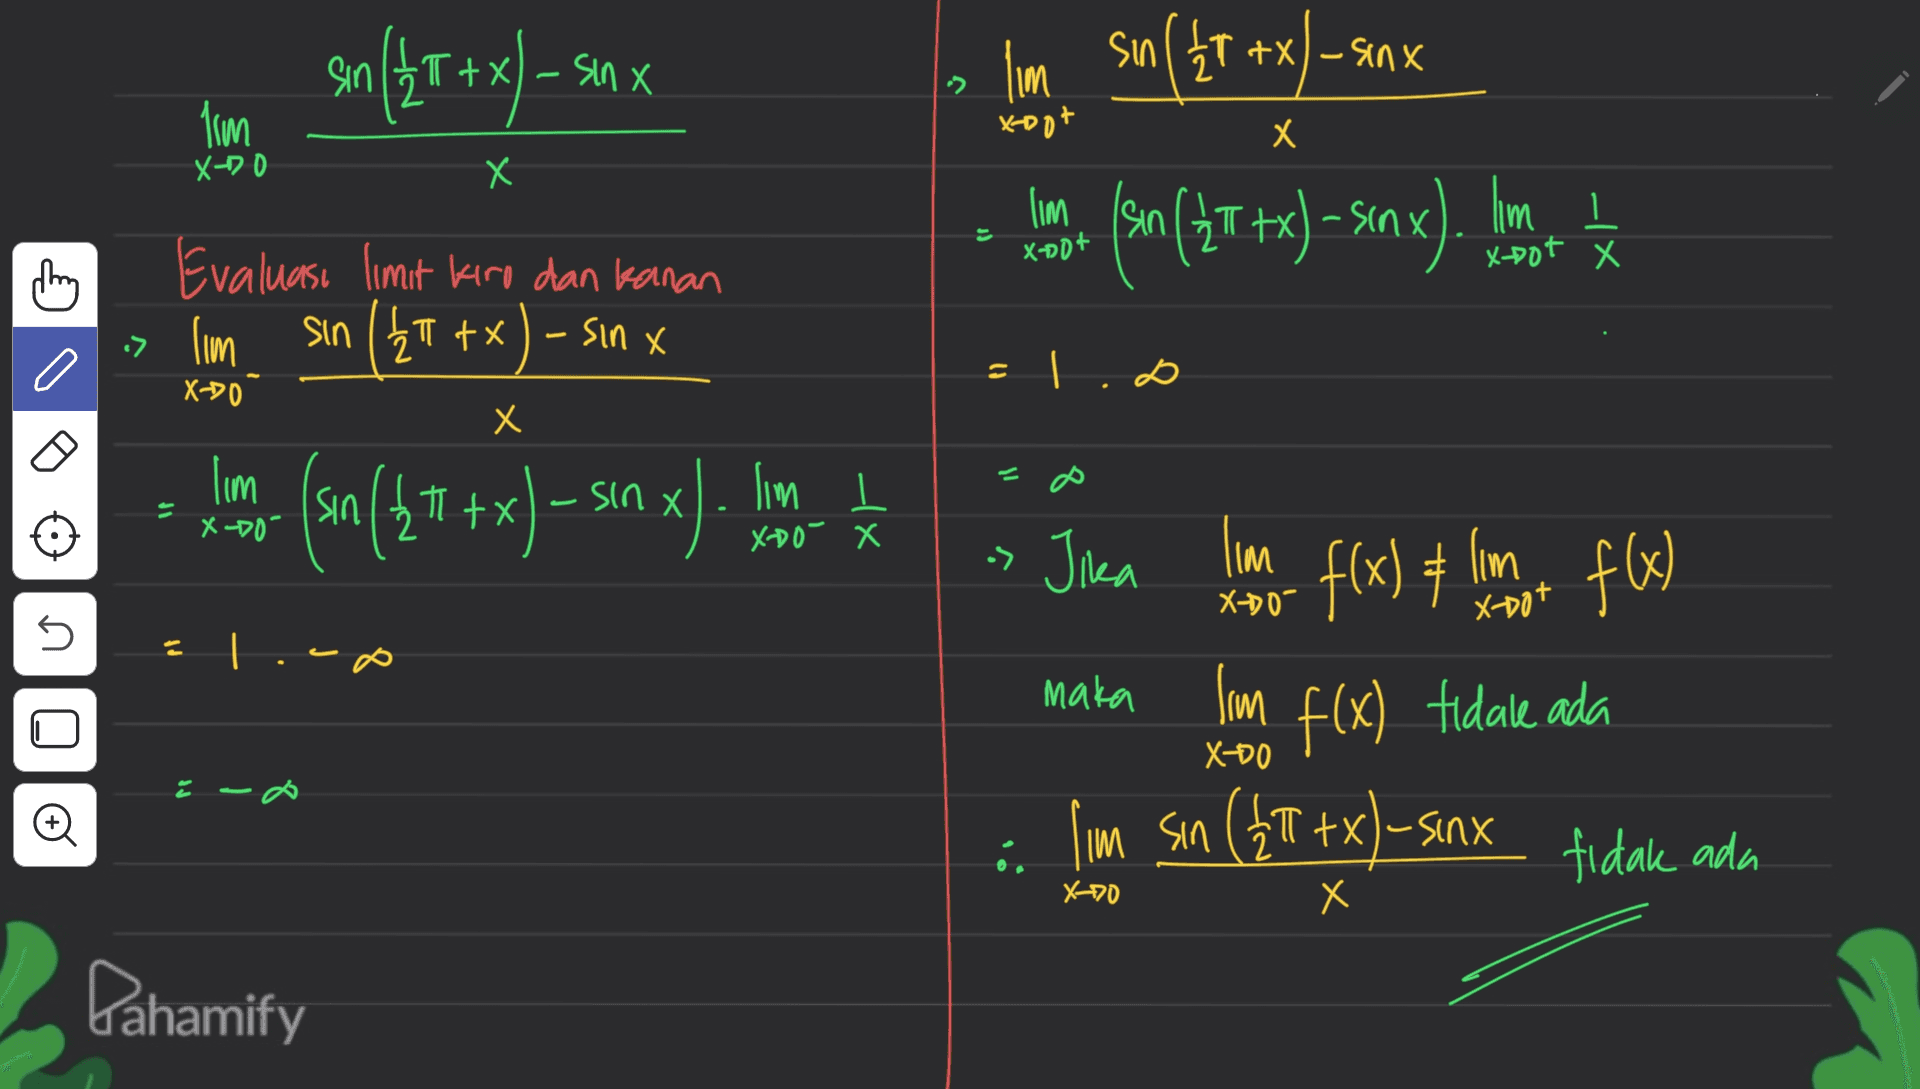 lim x→0 (sin(½π + x) – sin x) / x
Evaluasi limit kiri dan kanan
⋅> lim x→0⁻ (sin(½π + x) – sin x) / x
= lim x→0⁻ (sin(½π + x) – sin x) . lim x→0⁻ 1/x
= 1 . – ∞
= – ∞
⋅> lim x→0⁺ (sin(½π + x) – sin x) / x
= lim x→0⁺ (sin(½π + x) – sin x) . lim x→0⁺ 1/x
= 1 . ∞
= ∞
⋅> Jika lim x→0⁻ f(x) ≠ lim x→0⁺ f(x)
maka lim x→0 f(x) tidak ada
∴ lim x→0 (sin(½π + x) – sin x) / x tidak ada
Pahamify